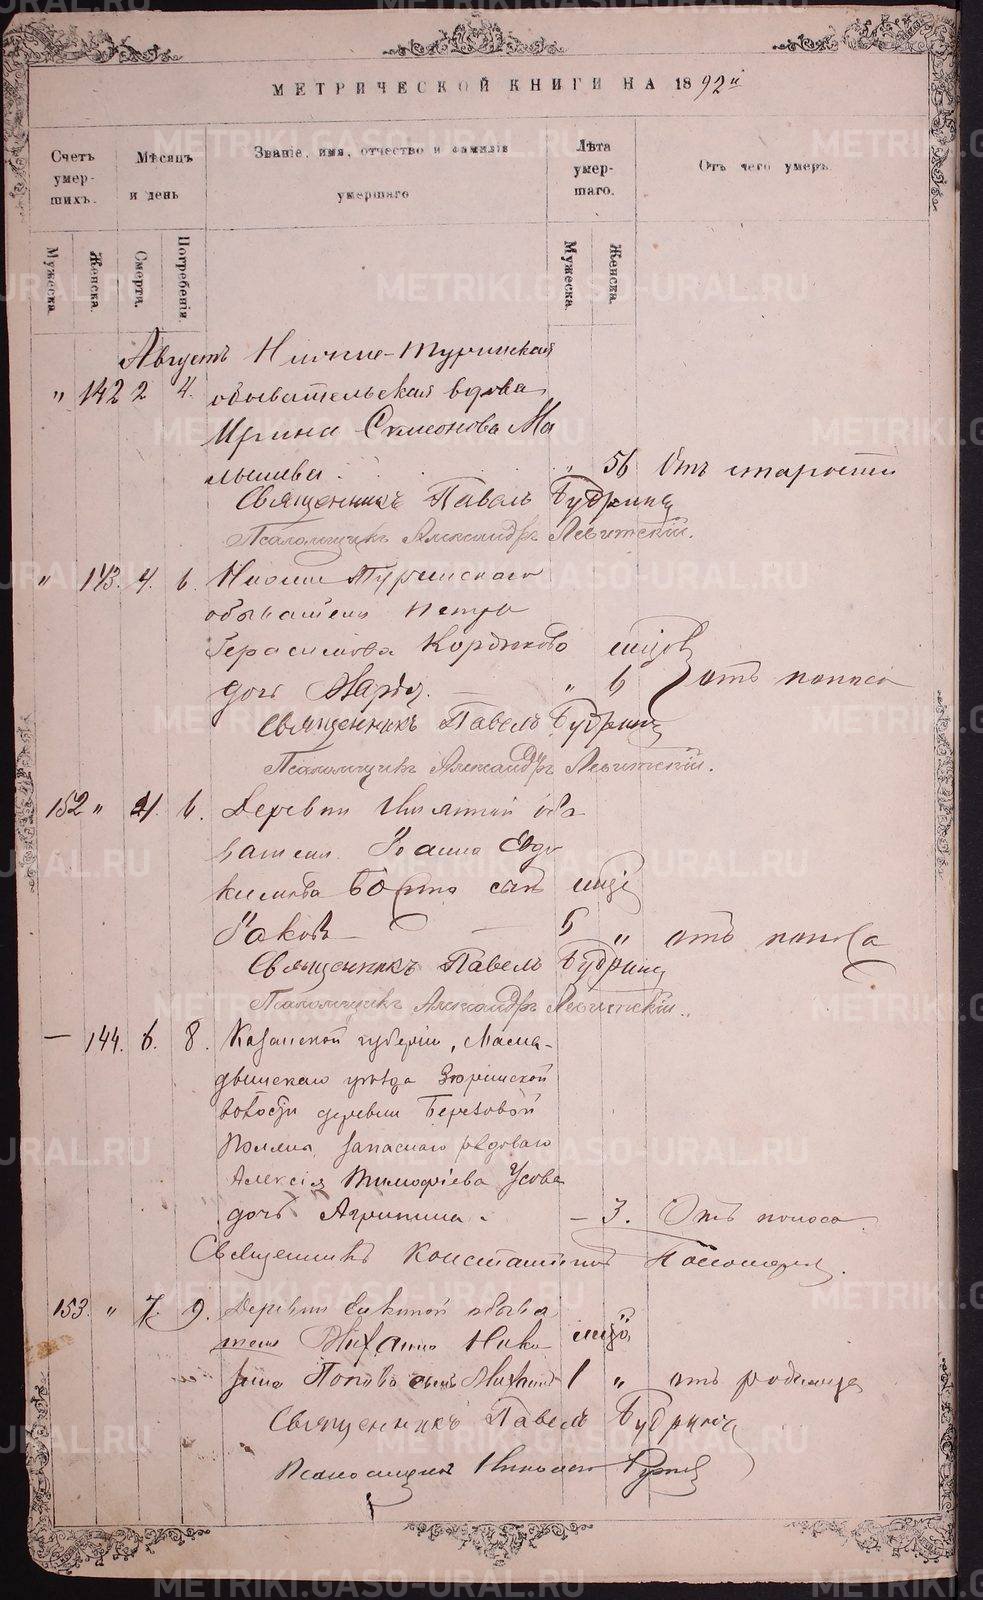 МЕТРИЧЕСКОЙ КНИГИ НА 1892й
Счетъ умер- шихъ.
Мѣсяцъ и день
Званіе, имя, отчество и фамилія умершаго
Лѣта умер- шаго.
Отъ чего умеръ.
Мужеска.
Женска.
Смерти.
Погребенія.
Мужеска.
Женска.
Августъ Нижне-Туринская
" 142 2 4. обывательская вдова
Ирина Симеонова Ма
лышева " 56 Отъ старости
Священникъ Павелъ Будринъ
Псаломщикъ Александръ Левитскій.
" 143. 4. 6. Нижне Туринскаго
обывателя Петра
Герасимова Кордюково
дочь Марія. " 6 отъ поноса
Священникъ Павелъ Будринъ
Псаломщикъ Александръ Левитскій.
152 " 4. 6. Деревни обы
вателя Іоанна Евдо
кимова сынъ
Іаковъ 5 " отъ поноса
Священникъ Павелъ Будринъ
Псаломщикъ Александръ Левитскій.
— 144. 6. 8. Казанской губерніи, Мама-
дышскаго уѣзда Зюринской
волости деревни Березовой
Поляны запаснаго рядоваго
Алексія Тимофіева Усова
дочь Агрипина. – 3. Отъ поноса.
Священникъ Константинъ
153. " 7. 9. Деревни обыва
теля Михаила Нико
лина Попова сынъ Михаилъ 1 " отъ родимца
Священникъ Павелъ Будринъ
Псаломщикъ Николай
METRIKI.GASO-URAL.RU